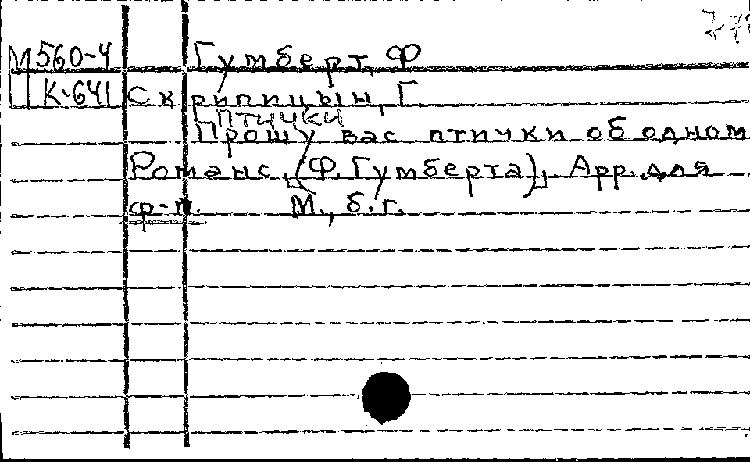 М560-4 Гумберт, Ф
К-641 Скрипицын, Г.
птички
Прошу вас птички об одном
Романс. (Ф. Гумберта). Арр. для
ф-п. М., б.г.